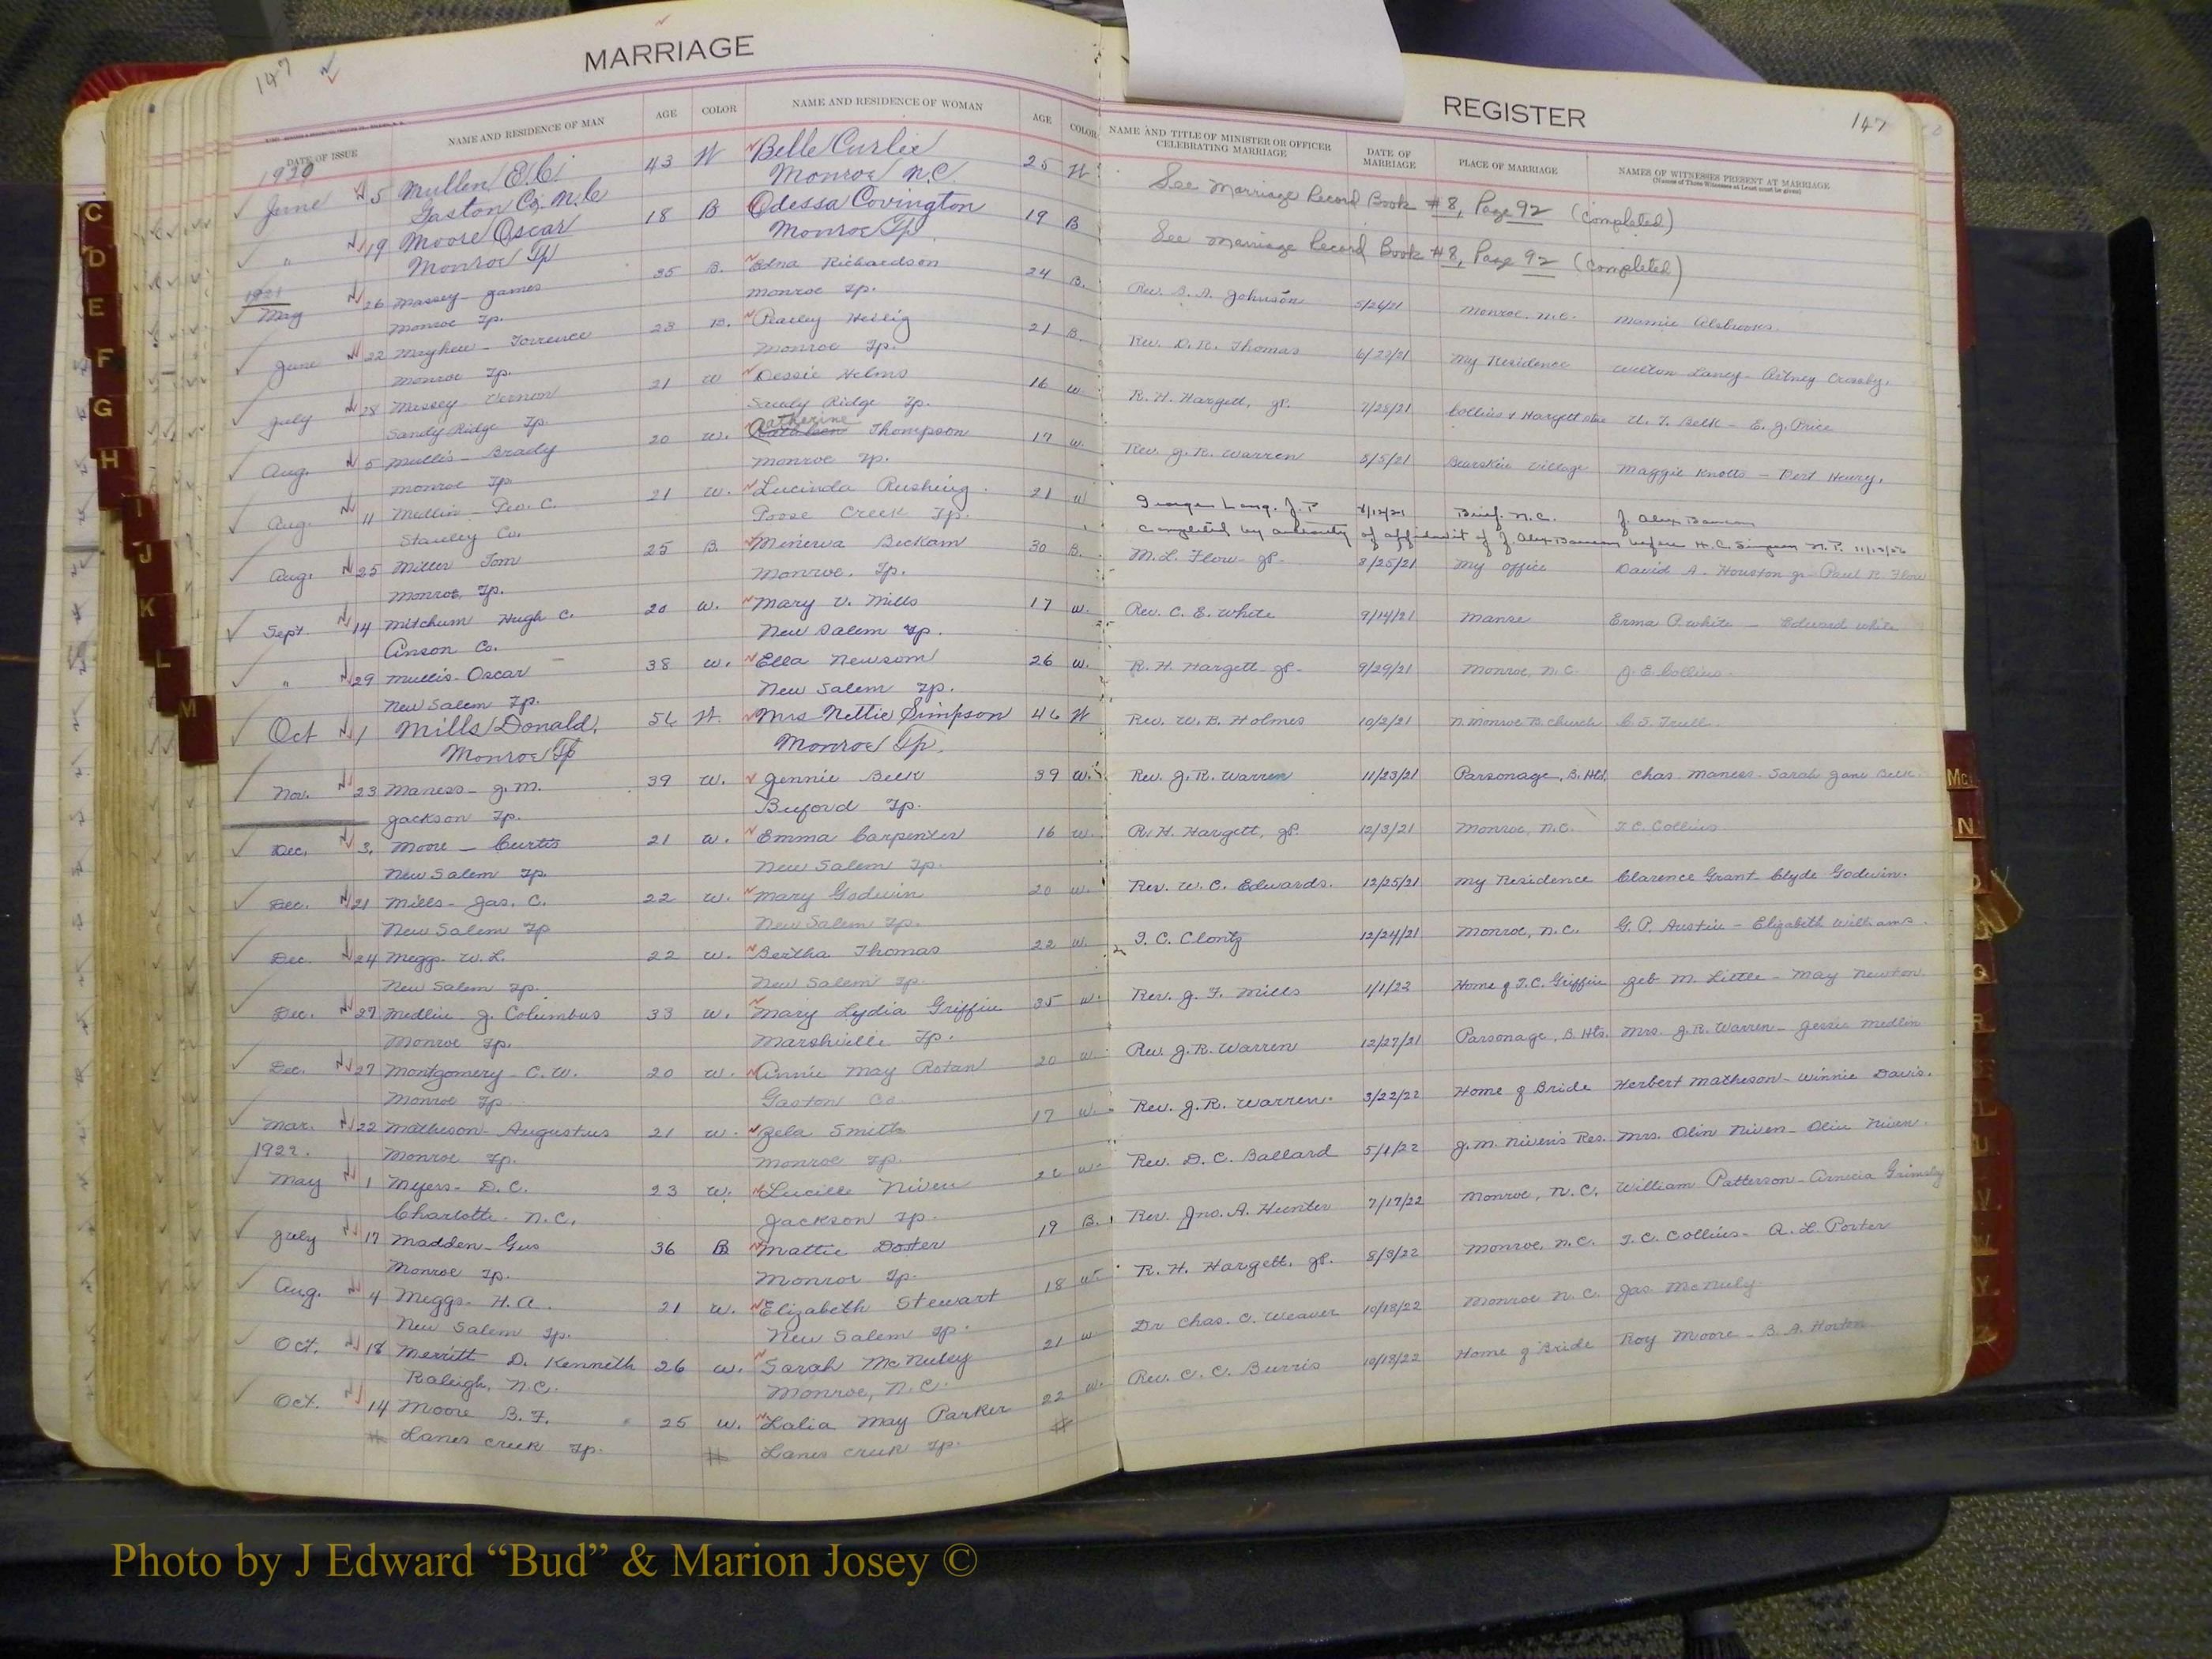 147
MARRIAGE
DATE OF ISSUE NAME AND RESIDENCE OF MAN AGE COLOR NAME AND RESIDENCE OF WOMAN AGE COLOR
1920
June 5 Mullen E. C. 43 W Belle Curlee 25 W
Gaston Co, N.C Monroe N.C
" 19 Moore Oscar 18 B Odessa Covington 19 B
Monroe Tp Monroe Tp.
1921
May 26 Massey - James 25 B. Edna Richardson 24 B.
Monroe Tp. Monroe Tp.
June 22 Mayhew - Torrence 23 B. Pearley Heilig 21 B.
Monroe Tp. Monroe Tp.
July 28 Massey - Vernon 21 W Dessie Helms 16 W.
Sandy Ridge Tp. Sandy Ridge Tp.
Catherine
Aug. 5 Mullis - Brady 20 W. Kathleen Thompson 17 W.
Monroe Tp. Monroe Tp.
Aug. 11 Mullin - Geo. C. 21 W. Lucinda Rushing 21 W
Stanley Co. Goose Creek Tp.
Aug. 25 Miller Tom 25 B. Minerva Beckam 30 B.
Monroe, Tp. Monroe. Tp.
Sept. 14 Mitchum Hugh C. 20 W. Mary V. Mills 17 W.
Anson Co. New Salem Tp.
" 29 Mullis - Oscar 38 W. Ella Newsom 26 W.
New Salem Tp. New Salem Tp.
Oct 1 Mills Donald, 56 W. Mrs Nettie Simpson 46 W
Monroe Tp Monroe Tp.
Nov. 23 Maness - J. M. 39 W. Jennie Belk 39 W.
Jackson Tp. Buford Tp.
Dec. 3. Moore - Curtis 21 W. Emma Carpenter 16 W.
New Salem Tp. New Salem Tp.
Dec. 21 Mills - Jas. C. 22 W. Mary Godwin 20 W.
New Salem Tp New Salem Tp.
Dec. 24 Meggs - W. L. 22 W. Bertha Thomas 22 W.
New Salem Tp. New Salem Tp.
Dec. 27 Medlin - J. Columbus 33 W. Mary Lydia Griffin 35 W.
Monroe Tp. Marshville Tp.
Dec. 27 Montgomery - C. W. 20 W. Annie May Rotan 20 W.
Monroe Tp Gaston Co
Mar. 22 Matheson - Augustus 21 W. Zela Smith 17 W.
1922. Monroe Tp. Monroe Tp.
May 1 Myers - D. C. 23 W. Lucille Niven 22 W.
Charlotte - N.C. Jackson Tp.
July 17 Madden - Gus 36 B Mattie Doster 19 B.
Monroe Tp. Monroe Tp.
Aug. 4 Meggs - H. A. 21 W. Elizabeth Stewart 18 W.
New Salem Tp. New Salem Tp.
Oct. 18 Merritt D. Kenneth 26 W. Sarah McNuley 21 W
Raleigh, N.C. Monroe, N.C.
Oct. 14 Moore B. F. 25 W. Lalia May Parker 22 W.
# Lanes Creek Tp. # Lanes Creek Tp. #
REGISTER
147
NAME AND TITLE OF MINISTER OR OFFICER CELEBRATING MARRIAGE DATE OF MARRIAGE PLACE OF MARRIAGE NAMES OF WITNESSES PRESENT AT MARRIAGE
(Names of Three Witnesses at Least must be given)
See Marriage Record Book #8, Page 92 (Completed)
See Marriage Record Book #8, Page 92 (Completed)
Rev. B. A. Johnson 5/26/21 Monroe, N.C. Mamie Alsbrooks.
Rev. D. R. Thomas 6/22/21 My Residence Wilton Laney - Critney Crosby.
R. H. Hargett, JP. 7/28/21 Collins & Hargett Store U. T. Belk - E. J. Price
Rev. J. R. Warren 8/5/21 Bearskin Village Maggie Knotts - Bert Henry.
George Long. J.P 8/12/21 Brief. N.C.
Completed by authority of affidavit of before H. C. Simpson N.P.
M. L. Flow - JP. 8/25/21 My office David A. Houston Jr - Paul R. Flow
Rev. C. E. White 9/14/21 Manse Erma P. White - Edward White
R. H. Hargett - JP. 9/29/21 Monroe, N.C. J. E. Collins.
Rev. W. B. Holmes 10/2/21 N. Monroe B. Church C. S. Trull.
Rev. J. R. Warren 11/23/21 Parsonage, B. Hts. Chas. Maness - Sarah Jane Belk
R. H. Hargett, JP. 12/3/21 Monroe, N.C. T. C. Collins
Rev. W. C. Edwards. 12/25/21 My Residence Clarence Grant - Clyde Godwin.
T. C. Clontz 12/24/21 Monroe, N.C. G. P. Austin - Elizabeth Williams.
Rev. J. F. Mills 1/1/22 Home of T. C. Griffin Jeb M. Little - May Newton.
Rev. J. R. Warren 12/27/21 Parsonage, B. Hts. Mrs. J. R. Warren - Jessie Medlin
Rev. J. R. Warren 3/22/22 Home of Bride Herbert Matheson - Winnie Davis.
Rev. D. C. Ballard 5/1/22 J. M. Niven's Res. Mrs. Olin Niven - Olin Niven.
Rev. Jno. A. Hunter 7/17/22 Monroe, N.C. William Patterson - Arnecia Grimsley
R. H. Hargett. JP. 8/3/22 Monroe, N.C. T. C. Collins - A. L. Porter
Dr Chas. C. Weaver 10/18/22 Monroe N.C. Jas. McNuly
Rev. C. C. Burris 10/18/22 Home of Bride Roy Moore - B. A. Horton
C
D
E
F
G
H
I
J
K
L
M
Mc
N
O
Q
R
U
V
W
Y
Photo by J Edward “Bud” & Marion Josey ©